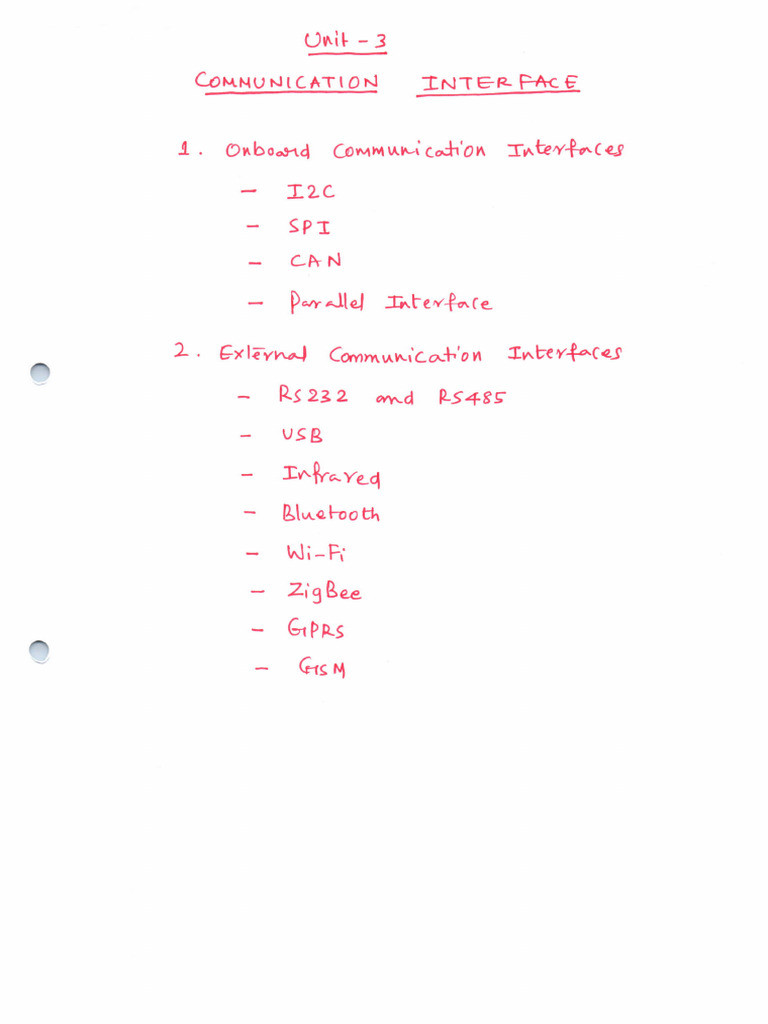 Unit - 3
COMMUNICATION INTERFACE
1. Onboard Communication Interfaces
- I2C
- SPI
- CAN
- Parallel Interface
2. External Communication Interfaces
- RS232 and RS485
- USB
- Infrared
- Bluetooth
- Wi-Fi
- ZigBee
- GPRS
- GSM